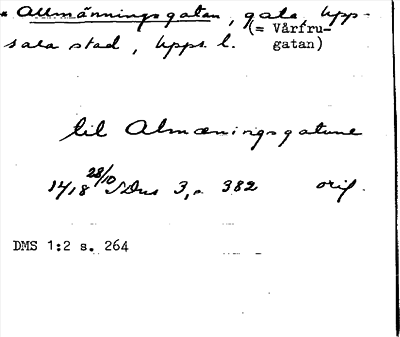 * Allmänningsgatan, gata, Upp-
sala stad, Upps. l. (= Vårfru-
gatan)
til Almænningsgatune
1418 28/10 SDns 3, s. 382 orig.
DMS 1:2 s. 264